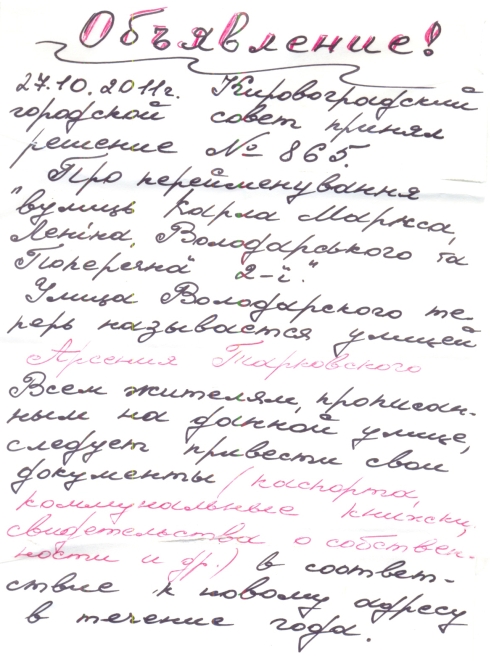 Объявление!
27.10.2011г. Кировоградский
городской совет принял
решение № 865.
Про перейменування
"вулиць Карла Маркса,
Леніна, Володарського та
Поперечна" 2-ї."
Улица Володарского те-
перь называется улицей
Арсения Тарковского
Всем жителям, прописан-
ным на данной улице,
следует привести свои
документы (паспорта,
коммунальные книжки,
свидетельства о собствен-
ности и др.) в соответ-
ствие к новому адресу
в течение года.